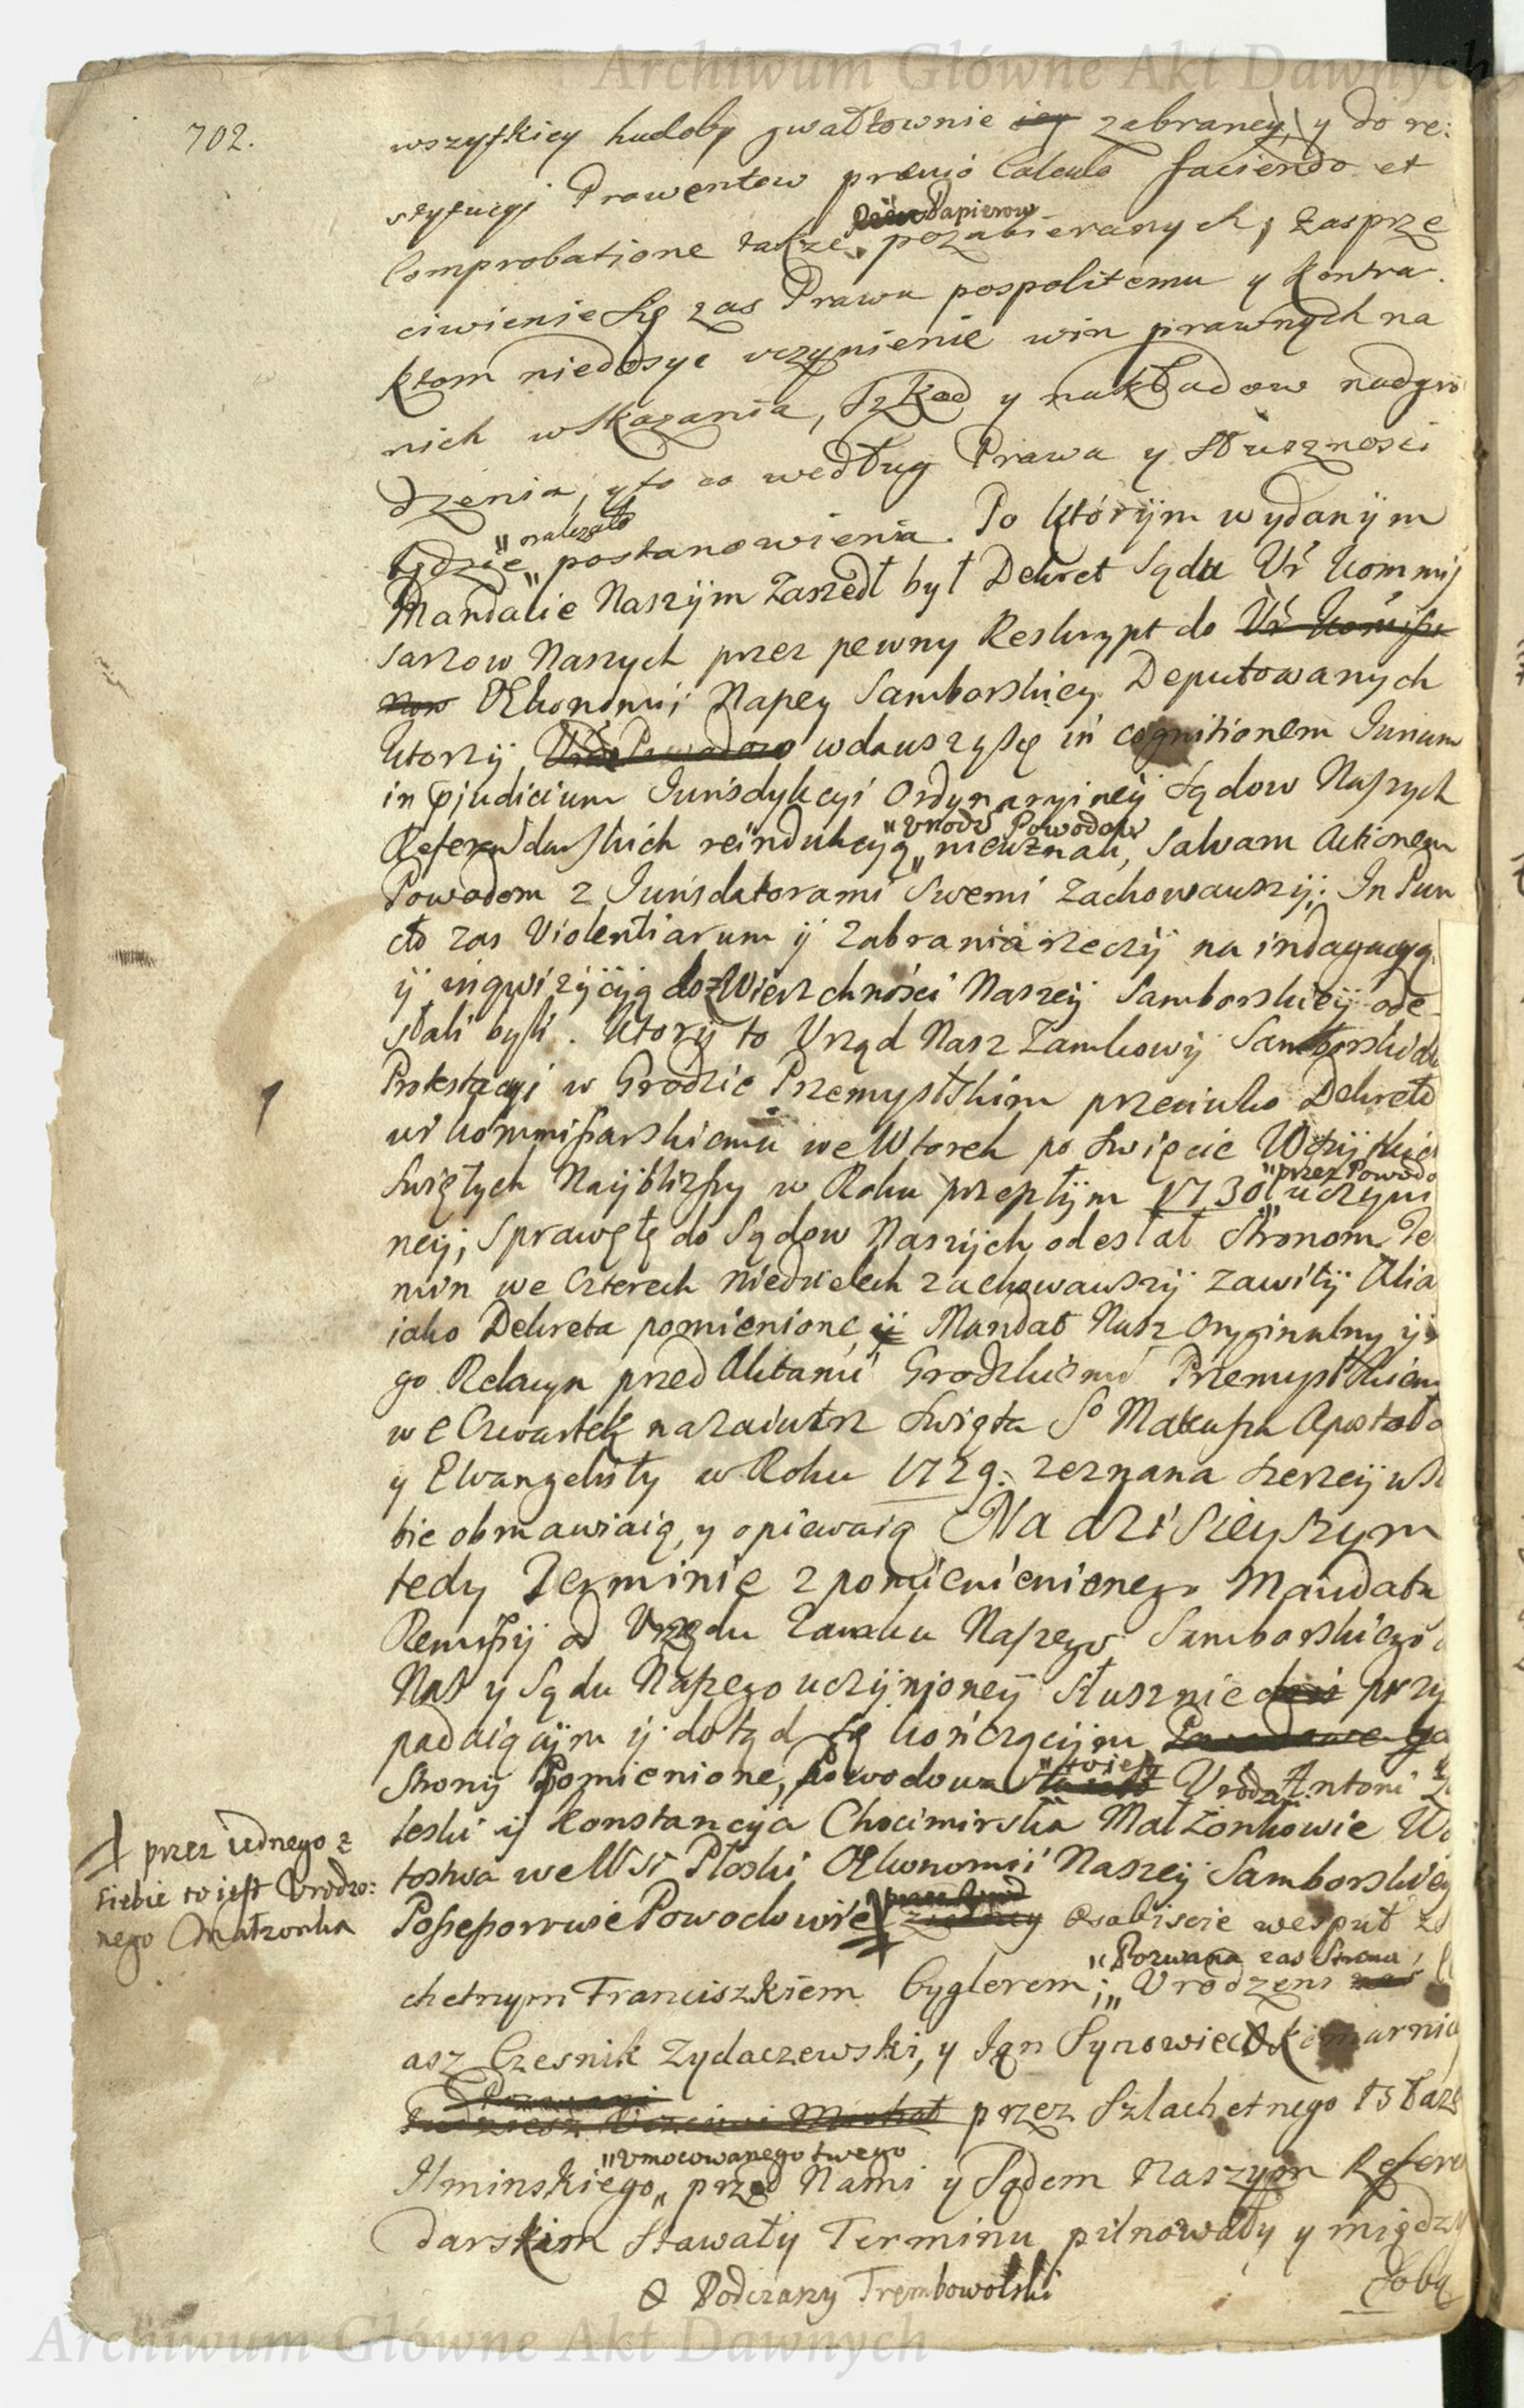 Archiwum Główne Akt Dawnych
702.
wszystkiey hudoby gwałtownie iey zabraney, y do re:
stytucyi Prowentow prævio Calculo faciendo et
Comprobatione także Papierow pozabieranych, zasprze
ciwienie Się zas Prawu pospolitemu y Kontra
ktom niedosyc uczynienie win prawnych na
nich wskazania, Szkod y nakładow nadgro
dzenia, y to co według Prawa y Słusznosci
będzie „należało„ postanowienia. Po którÿm wydanÿm
Mandacie Naszÿm Zaszedł był Dekret Sądu Ur Kommis
sarzow Naszych przez pewny Reskrypt do Ur Komissa
row Ekonomii Naszey Samborskiey Deputowanych
ktorzÿ Urodz Powodow wdawszy się in cognitionem Iurium
in præjudicium Iurisdykcyi Ordynaryineÿ Sądow Naszych
Referendarskich reindukcyą „Urodz Powodow„ nieuznali, Salvam Actionem
Powodom z Iurisdatorami Swemi zachowawszÿ; In Pun
cto zas Violentiarum ÿ zabrania rzeczÿ na indagacyą
ÿ inqwizÿcÿą do Zwierzchności Naszeÿ Samborskieÿ ode
słali byli. Ktorÿ to Urząd Nasz Zamkowÿ Samborski do
Protestacyi w Grodzie Przemyslskim przeciwko Dekreto
wi Kommissarskiemu we Wtorek po Swięcie Wszÿstkich
Swiętych Nayblizszy w Roku przeszłÿm 1730 „przez Powodo„ uczyni
neÿ, Sprawę tę do Sądow Naszÿch odesłał Stronom Te
rmin we czterech Niedzielach zachowawszÿ zawitÿ Alia
iako Dekreta pomienione, ÿ Mandat Nasz Oryginalny ÿ ie
go Relacya przed Aktami Grodzkiemi Przemyslskiemi
we Czwartek nazaiutrz Swięta So Mateusza Apostoła
y Ewangelisty w Roku 1729. zeznana szerzeÿ w so
bie obmawiaią, y opiewaią Na dzisieyszym
tedy Terminie z pomienionego Mandatu
Remissÿ od Urzędu Zamku Naszego Samborskiego do
Nas y Sądu Naszego uczÿnioneÿ słusznie przy
padaiącÿm ÿ dotąd się kończącÿm Powodowe
Stronÿ Pomienione, Powodowa „iest Urodz Antoni
leski ÿ Konstancya Chocimirska Małżonkowie Wo
tostwa we Wsi Płoski Ekonomii Naszeÿ Samborskiey
Possessorowie Powodowie Osobiscie wespuł z
przez iednego z
siebie to iest Urodzo:
nego Małzonka
chetnym Franciszkiem Cyglerem; „Pozwana zas Strona,„ Urodzeni zas
asz Czesnik Zydaczewski, y Ian Synowiec Komarnic
Pozwani
przez Szlachetnego
Ilminskiego „Umocowanego Swego„ przed Nami y Sądem Naszym Referen
darskim Stawały Terminu pilnowały y między
Sobą
Podczaszy Trembowolski
Archiwum Główne Akt Dawnych